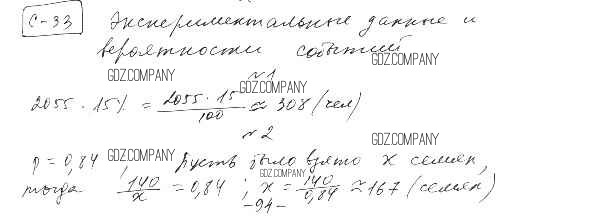 С-33 Экспериментальные данные и
вероятности событий
GDZ.COMPANY
GDZ.COMPANY
№1
GDZ.COMPANY
2055 · 15% = 2055 · 15 / 100 ≈ 308 (чел)
№2
GDZ.COMPANY
p = 0,84 GDZ.COMPANY, Пусть было взято x семян,
GDZ.COMPANY
тогда 140 / x = 0,84 ; x = 140 / 0,84 ≈ 167 (семян)
-94-